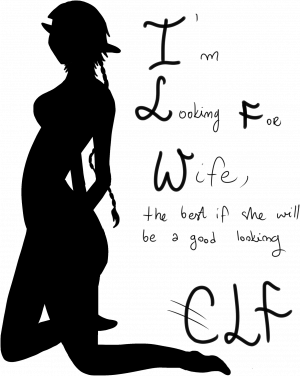 I'm
Looking For
Wife,
the best if she will
be a good looking
ELF